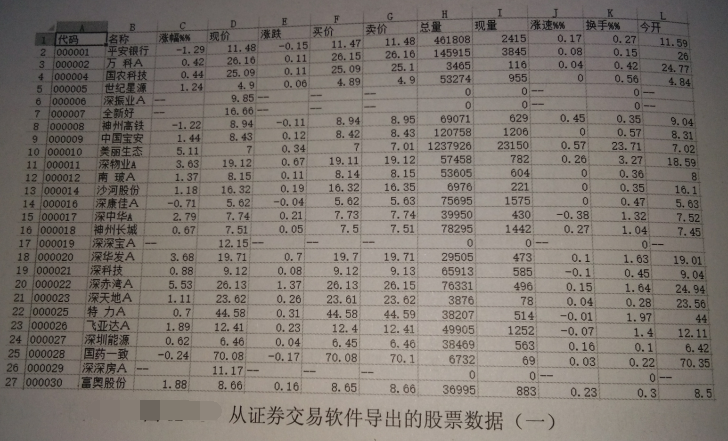 A B C D E F G H I J K L
1 代码 名称 涨幅%% 现价 涨跌 买价 卖价 总量 现量 涨速%% 换手%% 今开
2 000001 平安银行 -1.29 11.48 -0.15 11.47 11.48 461808 2415 0.17 0.27 11.59
3 000002 万 科A 0.42 26.16 0.11 26.15 26.16 145915 3845 0.08 0.15 26
4 000004 国农科技 0.44 25.09 0.11 25.09 25.1 3465 116 0.04 0.42 24.77
5 000005 世纪星源 1.24 4.9 0.06 4.89 4.9 53274 955 0 0.56 4.84
6 000006 深振业A -- 9.85 -- -- -- 0 0 -- 0 --
7 000007 全新好 -- 16.66 -- -- -- 0 0 -- 0 --
8 000008 神州高铁 -1.22 8.94 -0.11 8.94 8.95 69071 629 0.45 0.35 9.04
9 000009 中国宝安 1.44 8.43 0.12 8.42 8.43 120758 1206 0 0.57 8.31
10 000010 美丽生态 5.11 7 0.34 7 7.01 1237926 23150 0.57 23.71 7.02
11 000011 深物业A 3.63 19.12 0.67 19.11 19.12 57458 782 0.26 3.27 18.59
12 000012 南 玻A 1.37 8.15 0.11 8.14 8.15 53605 604 0 0.36 8
13 000014 沙河股份 1.18 16.32 0.19 16.32 16.35 6976 221 0 0.35 16.1
14 000016 深康佳A -0.71 5.62 -0.04 5.62 5.63 75695 1575 0 0.47 5.63
15 000017 深中华A 2.79 7.74 0.21 7.73 7.74 39950 430 -0.38 1.32 7.52
16 000018 神州长城 0.67 7.51 0.05 7.5 7.51 78295 1442 0.27 1.04 7.45
17 000019 深深宝A -- 12.15 -- -- -- 0 0 -- 0 --
18 000020 深华发A 3.68 19.71 0.7 19.7 19.71 29505 473 0.1 1.63 19.01
19 000021 深科技 0.88 9.12 0.08 9.12 9.13 65913 585 -0.1 0.45 9.04
20 000022 深赤湾A 5.53 26.13 1.37 26.13 26.15 76331 496 0.15 1.64 24.94
21 000023 深天地A 1.11 23.62 0.26 23.61 23.62 3876 78 0.04 0.28 23.56
22 000025 特 力A 0.7 44.58 0.31 44.58 44.59 38207 514 -0.01 1.97 44
23 000026 飞亚达A 1.89 12.41 0.23 12.4 12.41 49905 1252 -0.07 1.4 12.11
24 000027 深圳能源 0.62 6.46 0.04 6.45 6.46 38469 563 0.16 0.1 6.42
25 000028 国药一致 -0.24 70.08 -0.17 70.08 70.1 6732 69 0.03 0.22 70.35
26 000029 深深房A -- 11.17 -- -- -- 0 0 -- 0 --
27 000030 富奥股份 1.88 8.66 0.16 8.65 8.66 36995 883 0.23 0.3 8.5
从证券交易软件导出的股票数据（一）